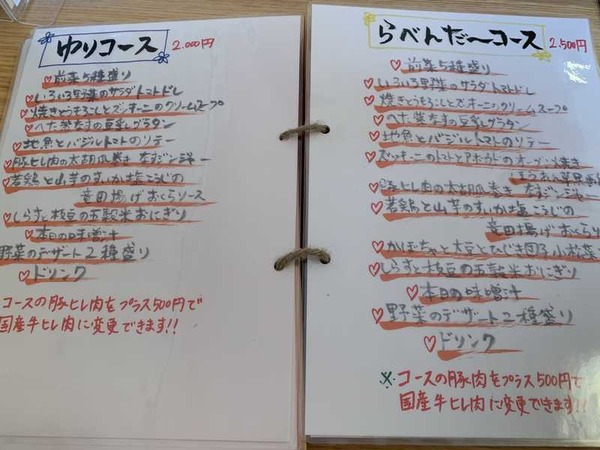 ゆりコース 2.000円
前菜5種盛り
いろいろ野菜のサラダトマトドレ
焼きとうもろこしとズッキーニのクリームスープ
へた紫なすの豆乳グラタン
地魚とバジルトマトのソテー
豚ヒレ肉の大胡瓜巻き なすジン
若鶏と山芋のすいか塩こうじの
竜田揚げおくらソース
しらすと枝豆の五穀米おにぎり
本日の味噌汁
野菜のデザート2種盛り
ドリンク
コースの豚ヒレ肉をプラス500円で
国産牛ヒレ肉に変更できます!!
らべんだ〜コース 2.500円
前菜5種盛り
いろいろ野菜のサラダトマトドレ
焼きとうもろこしとズッキーニのクリームスープ
へた紫なすの豆乳グラタン
地魚とバジルトマトのソテー
ズッキーニのトマトとアボカドのオーブン焼き
ほうれん草
豚ヒレ肉の大胡瓜巻き なすジン
若鶏と山芋のすいか塩こうじの
竜田揚げおくらソ
かぼちゃと大豆とひじき団子小松菜
しらすと枝豆の五穀米おにぎり
本日の味噌汁
野菜のデザート2種盛り
ドリンク
※コースの豚肉をプラス500円で
国産牛ヒレ肉に変更できます!!